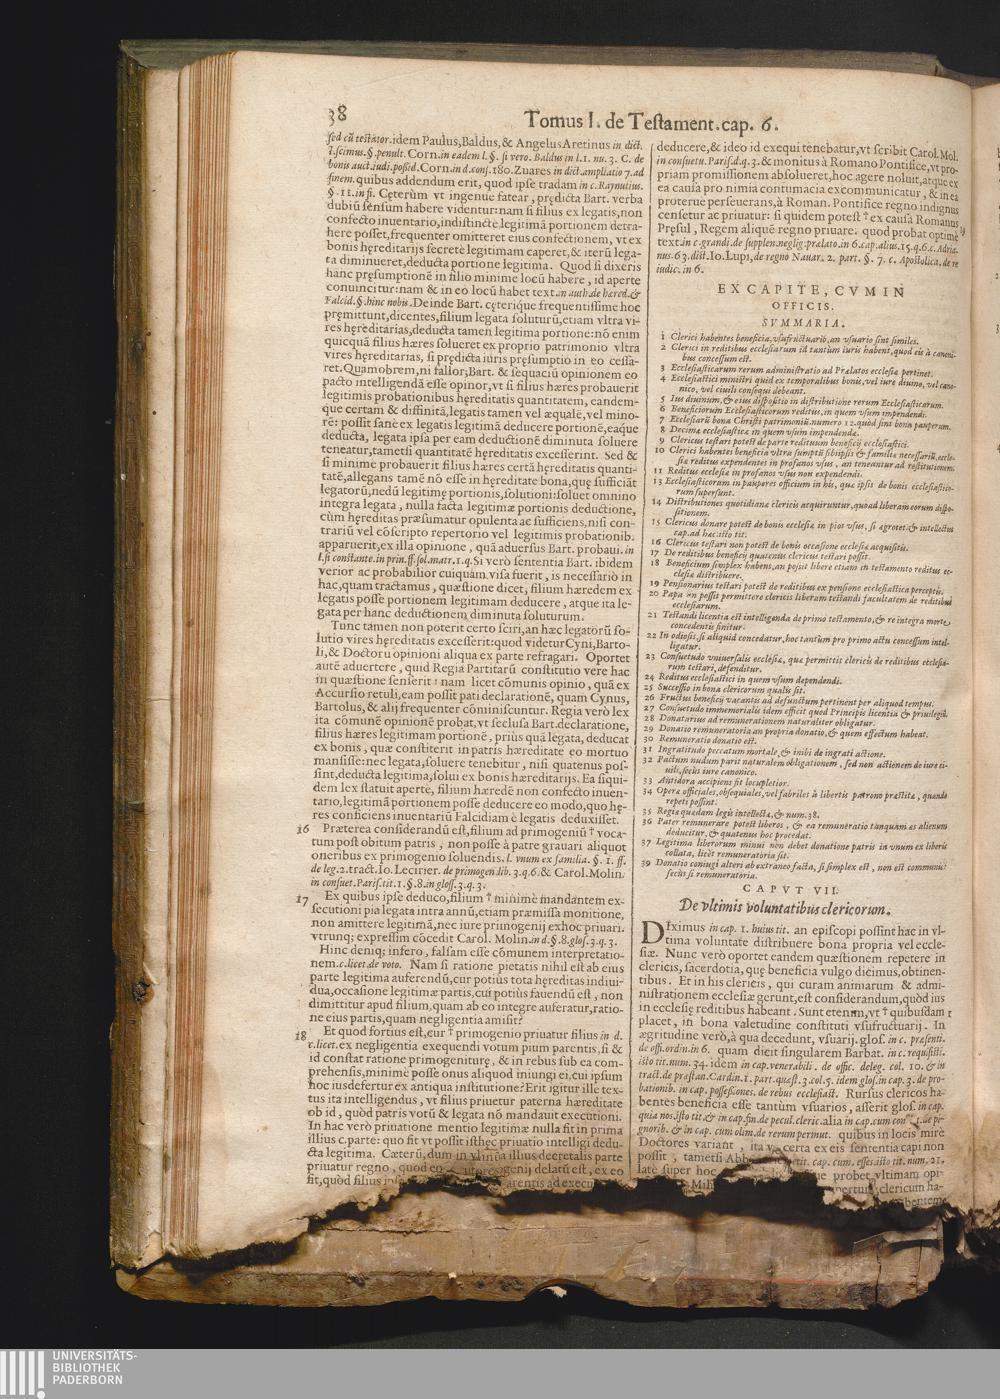 38
Tomus I. de Testament. cap. 6.
sed cũ testator. idem Paulus, Baldus, & Angelus Aretinus in dict.
l. scimus. §. penult. Corn. in eadem l. §. si vero. Baldus in l. 1. nu. 3. C. de
bonis auct. iudi. possid. Corn. in d. cons. 180. Zuares in dict. ampliatio 7. ad
finem. quibus addendum erit, quod ipse tradam in c. Raynutius.
§. 11. in fi. Cęterùm vt ingenue fatear, prędicta Bart. verba
dubiũ sensum habere videntur: nam si filius ex legatis, non
confecto inuentario, indistinctè, legitimã portionem detra-
here posset, frequenter omitteret eius confectionem, vt ex
bonis hęreditarijs secretè legitimam caperet, & iterũ lega-
ta diminueret, deducta portione legitima. Quod si dixeris
hanc pręsumptionẽ in filio minime locũ habere, id aperte
conuincitur: nam & in eo locũ habet text. in auth. de hæred. &
Falcid. §. hinc nobis. Deinde Bart. cęterique frequentissime hoc
pręmittunt, dicentes, filium legata soluturũ, etiam vltra vi-
res hęreditarias, deducta tamen legitima portione: nõ enim
quicquã filius hæres solueret ex proprio patrimonio vltra
vires hęreditarias, si prędicta iuris pręsumptio in eo cessa-
ret. Quamobrem, ni fallor, Bart. & sequaciũ opinionem eo
pacto intelligendã esse opinor, vt si filius hæres probauerit
legitimis probationibus hęreditatis quantitatem, eandem-
que certam & diffinitã, legatis tamen vel æquale, vel mino-
rẽ: possit sanè ex legatis legitimã deducere portionẽ, eaque
deducta, legata ipsa per eam deductionẽ diminuta soluere
teneatur, tametsi quantitatẽ hęreditatis excesserint. Sed &
si minime probauerit filius hæres certã hęreditatis quanti-
tatẽ, allegans tamẽ nõ esse in hęreditate bona, quę sufficiãt
legatorũ, nedũ legitimę portionis, solutioni: soluet omnino
integra legata, nulla facta legitimæ portionis deductione,
cùm hęreditas præsumatur opulenta ac sufficiens, nisi con-
trariũ vel cõscripto repertorio vel legitimis probationib.
apparuerit, ex illa opinione, quã aduersus Bart. probaui. in
l. si constante. in prin. ff. sol. matr. 1. q. Si verò sententia Bart. ibidem
verior ac probabilior cuiquàm, visa fuerit, is necessariò in
hac, quam tractamus, quæstione dicet, filium hæredem ex
legatis posse portionem legitimam deducere, atque ita le-
gata per hanc deductionem diminuta soluturum.
Tunc tamen non poterit certo sciri, an hæc legatorũ so-
lutio vires hęreditatis excesserit: quod videtur Cyni, Barto-
li, & Doctorũ opinioni aliqua ex parte refragari. Oportet
autẽ aduertere, quid Regiã Partitarũ constitutio vere hac
in quæstione senserit: nam licet cõmunis opinio, quã ex
Accursio retuli, eam possit pati declarationẽ, quam Cynus,
Bartolus, & alij frequenter cõminiscuntur. Regia verò lex
ita cõmunẽ opinionẽ probat, vt seclusa Bart. declaratione,
filius hæres legitimam portionẽ, priùs quã legata, deducat
ex bonis, quæ constiterit in patris hæreditate eo mortuo
mansisse: nec legata, soluere tenebitur, nisi quatenus pos-
sint, deducta legitima, solui ex bonis hæreditarijs. Ea siqui-
dem lex statuit apertè, filium hæredẽ non confecto inuen-
tario, legitimã portionem posse deducere eo modo, quo hę-
res conficiens inuentariũ Falcidiam è legatis deduxisset.
16 Præterea considerandũ est, filium ad primogeniũ † voca-
tum post obitum patris, non posse à patre grauari aliquot
oneribus ex primogenio soluendis. l. vnum ex familia. §. 1. ff.
de leg. 2. tract. Io. Lecirier. de primogen. lib. 3. q. 6. & Carol. Molin.
in consuet. Paris. tit. 1. §. 8. in gloss. 3. q. 3.
17 Ex quibus ipse deduco, filium † minimè mandantem ex-
secutioni pia legata intra annũ, etiam præmissa monitione,
non amittere legitimã, nec iure primogenij exhoc priuari.
vtrunq; expressim cõcedit Carol. Molin. in d. §. 8. glos. 3. q. 3.
Hinc deniq; infero, falsam esse cõmunem interpretatio-
nem. c. licet. de voto. Nam si ratione pietatis nihil est ab eius
parte legitima auferendũ, cur potiùs tota hęreditas indiui-
dua, occasione legitimæ partis, cui potiùs fauendũ est, non
dimittitur apud filium, quam ab eo integre auferatur, ratio-
ne eius partis, quam negligentia amisit?
18 Et quod fortius est, cur † primogenio priuatur filius in d.
c. licet. ex negligentia exequendi votum pium parentis, si &
id constat ratione primogeniturę, & in rebus sub ea com-
prehensis, minimè posse onus aliquod iniungi ei, cui ipsum
hoc iusdefertur ex antiqua institutione? Erit igitur ille tex-
tus ita intelligendus, vt filius priuetur paterna hæreditate
ob id, quòd patris votũ & legata nõ mandauit executioni.
In hac verò priuatione mentio legitimæ nulla fit in prima
illius c. parte: quo fit vt possit isthęc priuatio intelligi dedu-
cta legitima. Cæterũ, dum in vltima illius decretalis parte
priuatur regno, quod eo iure primogenij delatũ est, ex eo
fit, quòd filius parentis ad
deducere, & ideo id exequi tenebatur, vt scribit Carol. Mol.
in consuetu. Paris. d. q. 3. & monitus à Romano Pontifice, vt pro-
priam promissionem absolueret, hoc agere noluit, atque ex
ea causa pro nimia contumacia excommunicatur, & in ea
proterue perseuerans, à Roman. Pontifice regno indignus
censetur ac priuatur: si quidem potest † ex causa Romanus 19
Pręsul, Regem aliquẽ regno priuare. quod probat optimè
text. in c. grandi. de supplen. neglig. prælato. in 6. cap. alius. 15. q. 6. c. Adria-
nus. 63. dist. Io. Lupi, de regno Nauar. 2. part. §. 7. c. Apostolica. de re
iudic. in 6.
EX CAPITE, CVM IN
OFFICIS.
SVMMARIA.
1 Clerici habentes beneficia, vsufructuarij, an vsuarij sint similes.
2 Clerici in reditibus ecclesiarum id tantùm iuris habent, quod eis à canoni-
bus concessum est.
3 Ecclesiasticarum rerum administratio ad Prælatos ecclesiæ pertinet.
4 Ecclesiastici ministri quid ex temporalibus bonis, vel iure diuino, vel cano-
nico, vel ciuili consequi debeant.
5 Ius diuinum, & eius dispositio in distributione rerum Ecclesiasticarum.
6 Beneficiorum Ecclesiasticorum reditus, in quem vsum impendendi.
7 Ecclesiarũ bona Christi patrimoniũ. numero 12. quòd sint bona pauperum.
8 Decimæ ecclesiasticæ in quem vsum impendendæ.
9 Clericus testari potest de parte redituum beneficij ecclesiastici.
10 Clerici habentes beneficia vltra sumptũ sibiipsis & familiæ necessariũ, eccle-
siæ reditus expendentes in profanos vsus, an teneantur ad restitutionem.
11 Reditus ecclesiæ in profanos vsus non expendendi.
13 Ecclesiasticorum in pauperes officium in his, quæ ipsis de bonis ecclesiastico-
rum supersunt.
14 Distributiones quotidianæ clericis acquiruntur, quoad liberam eorum dispo-
sitionem.
15 Clericus donare potest de bonis ecclesiæ in pios vsus, si ægrotet: & intellectus
cap. ad hæc. isto tit.
16 Clericus testari non potest de bonis occasione ecclesiæ acquisitis.
17 De reditibus beneficij quatenus clericus testari possit.
18 Beneficium simplex habens, an possit libere etiam in testamento reditus ec-
clesiæ distribuere.
19 Pensionarius testari potest de reditibus ex pensione ecclesiastica perceptis.
20 Papa an possit permittere clericis liberam testandi facultatem de reditibus
ecclesiarum.
21 Testandi licentia est intelligenda de primo testamento, & re integra morte
concedentis finitur.
22 In odiosis, si aliquid concedatur, hoc tantùm pro primo actu concessum intel-
ligatur.
23 Consuetudo vniuersalis ecclesiæ, quæ permittit clericis de reditibus ecclesia-
rum testari, defenditur.
24 Reditus ecclesiastici in quem vsum dependendi.
25 Successio in bona clericorum qualis sit.
26 Fructus beneficij vacantis ad defunctum pertinent per aliquod tempus.
27 Consuetudo immemorialis idem efficit quod Principis licentia & priuilegiũ.
28 Donatarius ad remunerationem naturaliter obligatur.
29 Donatio remuneratoria an propria donatio, & quem effectum habeat.
30 Remuneratio donatio est.
31 Ingratitudo peccatum mortale, & inibi de ingrati actione.
32 Pactum nudum parit naturalem obligationem, sed non actionem de iure ci-
uili, secùs iure canonico.
33 Antidora accipiens fit locupletior.
34 Operæ officiales, obsequiales, vel fabriles à libertis patrono præstitæ, quando
repeti possint.
35 Regia quædam legis intellecta, & num. 38.
36 Pater remunerare potest liberos, & ea remuneratio tanquam æs alienum
deducitur, & quatenus hoc procedat.
37 Legitima liberorum minui non debet donatione patris in vnum ex liberis
collata, licèt remuneratoria sit.
39 Donatio coniugi alteri ab extraneo facta, si simplex est, non est communis:
secùs si remuneratoria.
CAPVT VII.
De vltimis voluntatibus clericorum.
DIximus in cap. 1. huius tit. an episcopi possint hac in vl-
tima voluntate distribuere bona propria vel eccle-
siæ. Nunc verò oportet eandem quæstionem repetere in
clericis, sacerdotia, quę beneficia vulgo dicimus, obtinen-
tibus. Et in his clericis, qui curam animarum & admi-
nistrationem ecclesiæ gerunt, est considerandum, quòd ius
in ecclesię reditibus habeant. Sunt etenim, vt † quibusdam 1
placet, in bona valetudine constituti vsufructuarij. In
ægritudine verò, à qua decedunt, vsuarij. glos. in c. præsenti.
de offi. ordin. in 6. quam dicit singularem Barbat. in c. requisisti.
isto tit. num. 34. idem in cap. venerabili. de offic. deleg. col. 10. & in
tract. de præstan. Cardin. 1. part. quæst. 3. col. 5. idem glos. in cap. 3. de pro-
bationib. in cap. possessiones. de rebus ecclesiast. Rursus clericos ha-
bentes beneficia esse tantùm vsuarios, asserit glos. in cap.
quia nos. isto tit. & in cap. fin. de pecul. cleric. alia in cap. cum de pi-
gnorib. & in cap. cum olim. de rerum permut. quibus in locis mirè
Doctores variant, ita vt certa ex eis sententia capi non
possit, tametsi Abb. tit. cap. cum. esses. isto tit. num. 21.
latè super hoc probet vltimam opi-
clericum ha-
bentem
UNIVERSITÄTS-
BIBLIOTHEK
PADERBORN